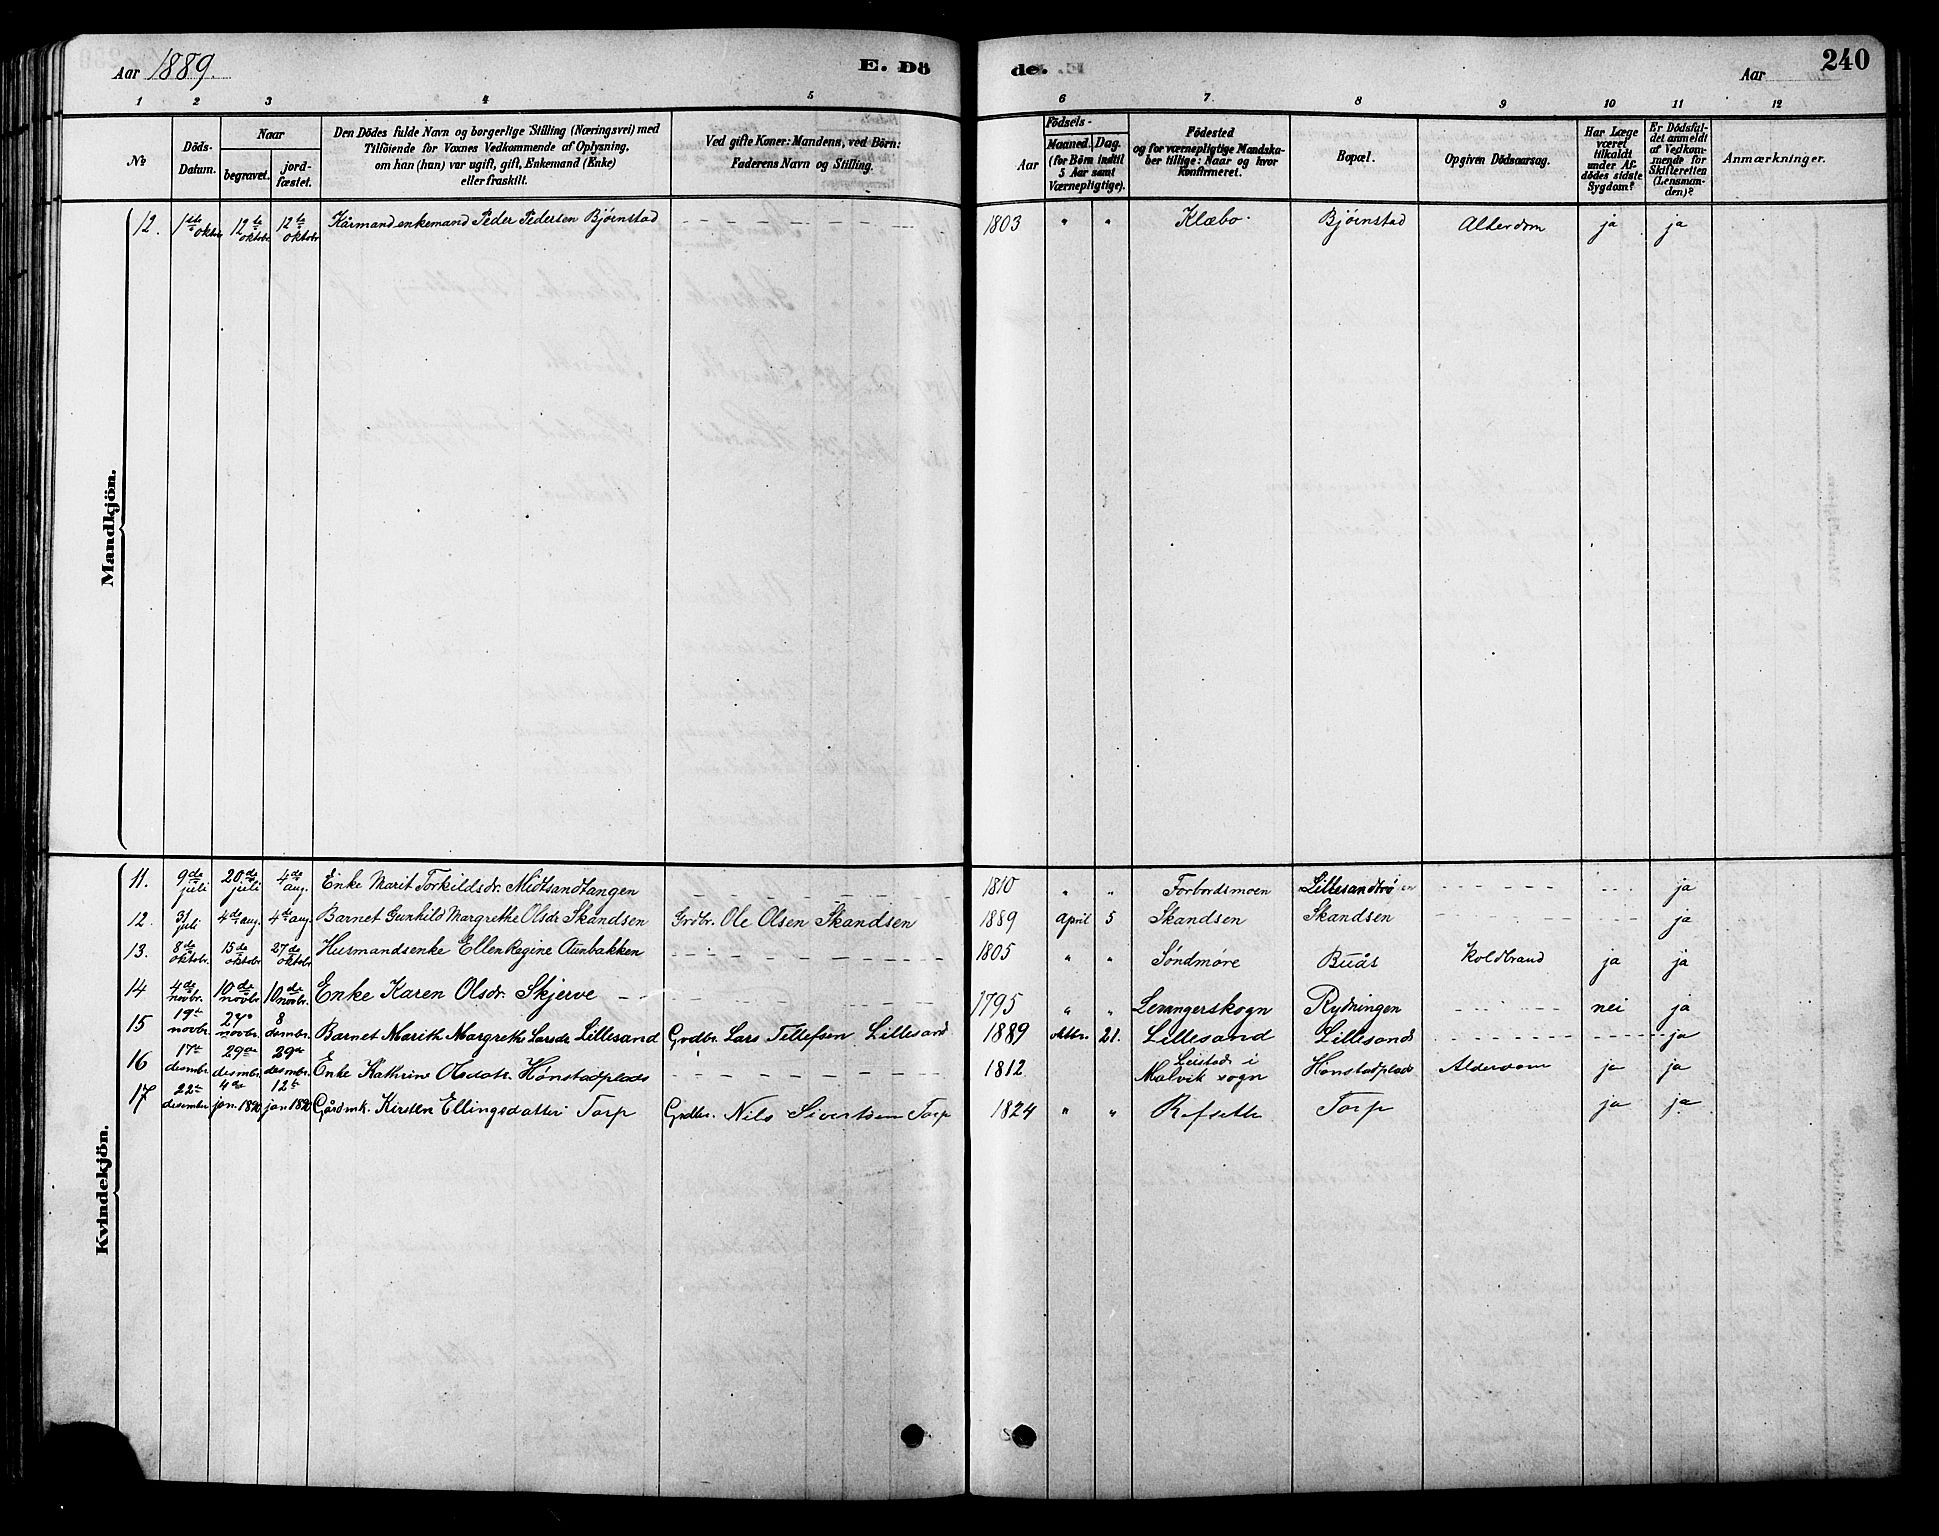 Aar 1889. E. Dö de. Aar 240
1 2 3 4 5 6 7. 8 9 10 11 12
№ Döds-Datum. Naar begravet. jord-fæstet. Den Dödes fulde Navn og borgerlige Stilling (Næringsvei) med Tilföiende for Voxnes Vedkommende af Oplysning, om han (hun) var ugift, gift, Enkemand (Enke) eller fraskilt. Ved gifte Koner: Mandens, ved Börn: Faderens Navn og Stilling. Aar Födsels- Maaned. Dag. (for Børn indtil 5 Aar samt Værnepligtige). Födested og for værnepligtige Mandska-ber tillige: Naar og hvor konfirmeret. Bopæl. Opgiven Dödsaarsag. Har Læge været tilkaldt under Af-dödes sidste Sygdom? Er Dödsfal-det anmeldt af Vedkom-mende for Skifteretten (Lensman-den)? Anmærkninger.
Mandkjön.
12. 1ste oktbr 12te oktobr 12te oktobr Kårmand enkemand Peder Pedersen Bjørnstad - - - 1803 " " Klæbo. Bjørnstad Alderdom ja ja
Kvindekjön.
11. 9de juli 20de juli 4de aug. Enke Marit Torkildsdr. Midtsandtangen - - - 1810 " " Forbordsmoen Lillesandtrøen - - - - - - ja
12. 31 juli 4de aug. 4de aug. Barnet Gunhild Margrethe Olsdr Skandsen Grdbr. Ole Olsen Skandsen 1889 april 5 Skandsen Skandsen ja
13. 8de oktobr. 15de oktobr 27de oktobr Husmandsenke Ellen Regine Aunbakken - - - 1805 " " Søndmøre Buås Koldbrand ja ja
14 4de novbr. 10de novbr 10de novbr. Enke Karen Olsdr. Skjerve - - - 1795 " " Levangerskogn Rydningen - - - nei ja
15 19de novbr novbr. 8 desmbr. Barnet Marith Margrethe Larsdr Lillesand Grdbr. Lars Tellefsen Lillesand 1889 oktbr. 21. Lillesand Lillesand - - - ja
16 17de desmbr. 29de desmbr. 29de desmbr. Enke Kathrine Olsdatr. Hønstadplads - - - 1812 Leistad i Malvik sogn Hønstadplads Alderdom ja ja
17 22de desember 4de jan. 1890 12te jan. 1890 Gårdmk. Kirsten Ellingsdatter Torp Grdbr. Nils Sivertsen Torp 1824 " " Refseth Torp ja ja